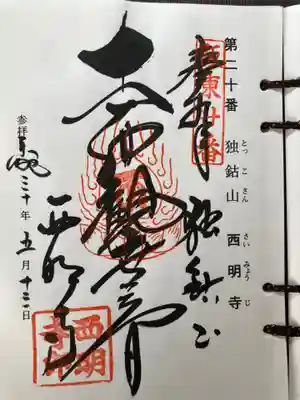 第二十番 独鈷山 西明寺
とっこさん さいみょうじ
坂東廿番
奉拝
独鈷山
十一面観世音
西明寺
参拝 平成三十年 五月十三日
西明寺印